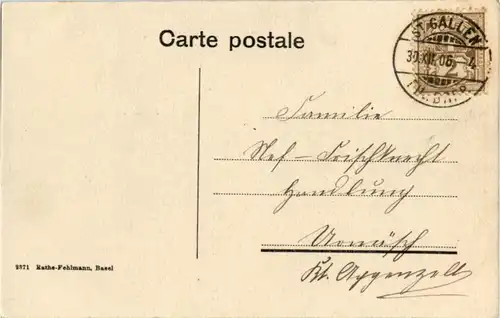 Carte postale
ST. GALLEN
30.XII.06. 4
2
Familie
Nef - Frischknecht
Handlung
Urnäsch
Kt. Appenzell
2371 Rathe-Fehlmann, Basel